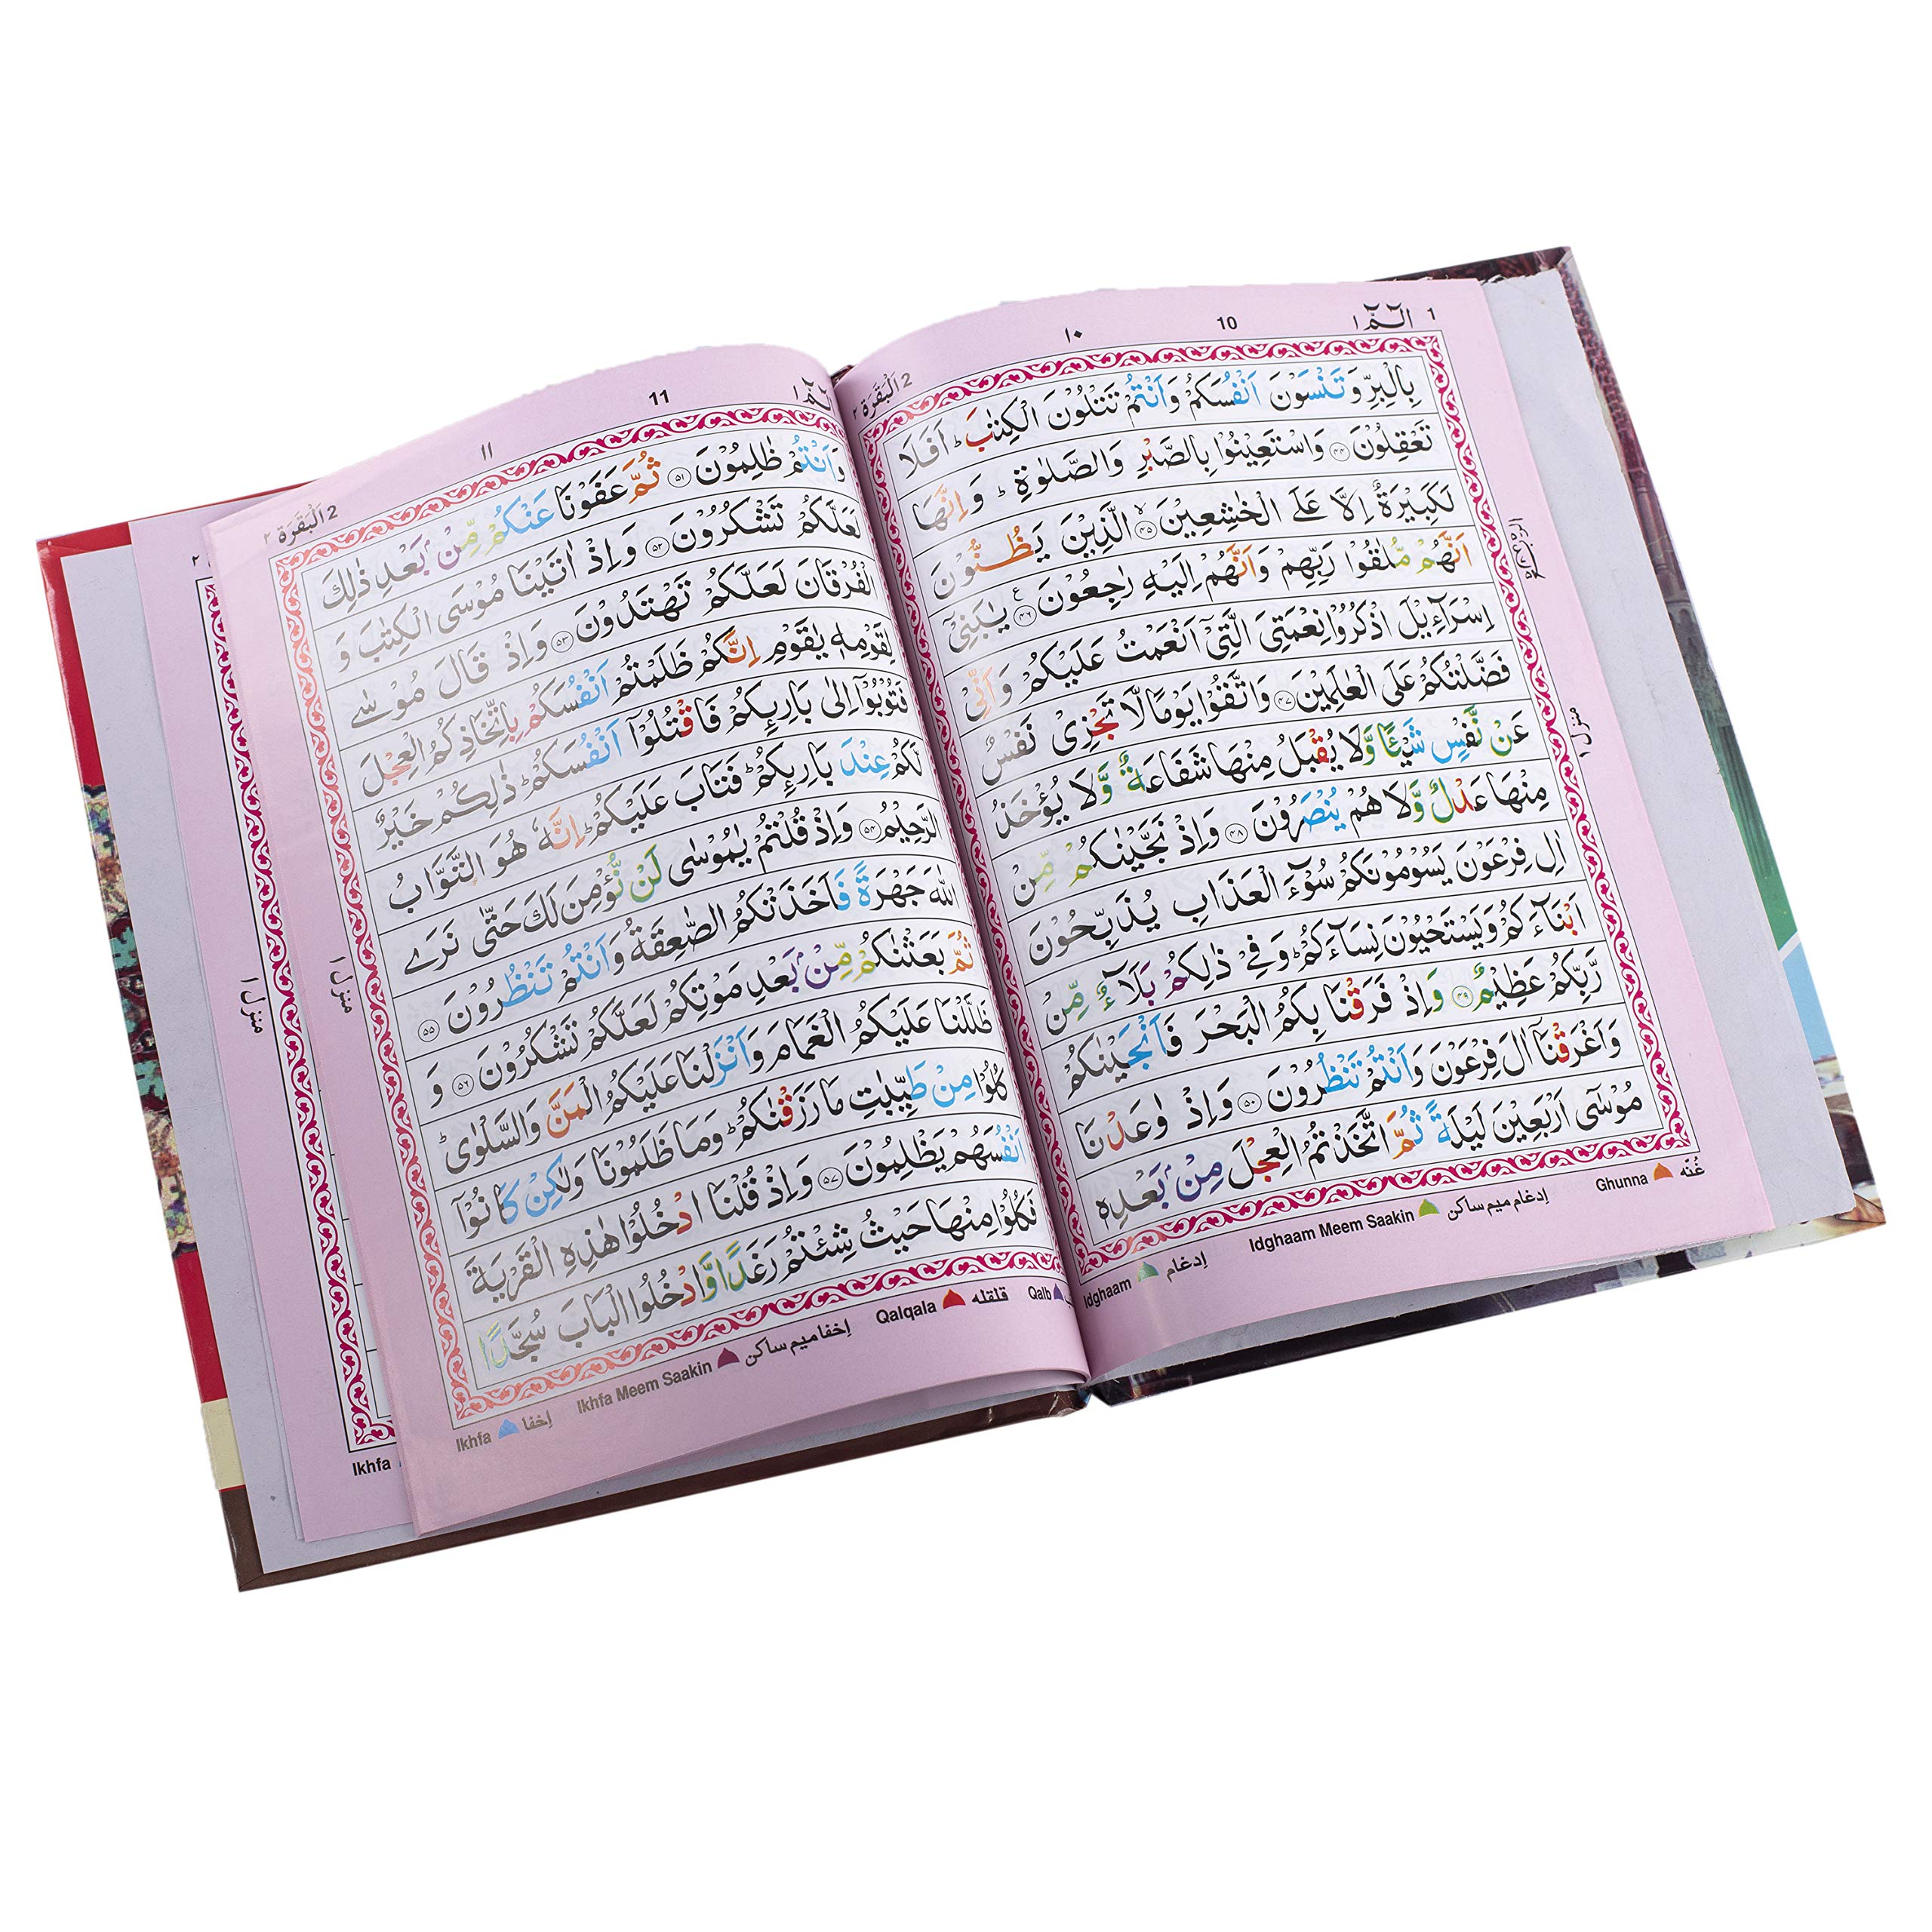 1 الٓمّٓ ١
10
١٠
2 اَلْبَقَرَة ٢
بِالْبِرِّ وَتَنْسَوْنَ اَنْفُسَكُمْ وَاَنْتُمْ تَتْلُوْنَ الْكِتٰبَ ؕ اَفَلَا
تَعْقِلُوْنَ ﴿۴۴﴾ وَاسْتَعِيْنُوْا بِالصَّبْرِ وَالصَّلٰوةِ ؕ وَاِنَّهَا
لَكَبِيْرَةٌ اِلَّا عَلَى الْخٰشِعِيْنَ ﴿۴۵﴾ الَّذِيْنَ يَظُنُّوْنَ
اَنَّهُمْ مُّلٰقُوْا رَبِّهِمْ وَاَنَّهُمْ اِلَيْهِ رٰجِعُوْنَ ﴿۴۶﴾ يٰبَنِيْٓ
اِسْرَآءِيْلَ اذْكُرُوْا نِعْمَتِيَ الَّتِيْٓ اَنْعَمْتُ عَلَيْكُمْ وَاَنِّيْ
فَضَّلْتُكُمْ عَلَى الْعٰلَمِيْنَ ﴿۴۷﴾ وَاتَّقُوْا يَوْمًا لَّا تَجْزِيْ نَفْسٌ
عَنْ نَّفْسٍ شَيْـًٔا وَّلَا يُقْبَلُ مِنْهَا شَفَاعَةٌ وَّلَا يُؤْخَذُ
مِنْهَا عَدْلٌ وَّلَا هُمْ يُنْصَرُوْنَ ﴿۴۸﴾ وَاِذْ نَجَّيْنٰكُمْ مِّنْ
اٰلِ فِرْعَوْنَ يَسُوْمُوْنَكُمْ سُوْٓءَ الْعَذَابِ يُذَبِّحُوْنَ
اَبْنَآءَكُمْ وَيَسْتَحْيُوْنَ نِسَآءَكُمْ ؕ وَفِيْ ذٰلِكُمْ بَلَآءٌ مِّنْ
رَّبِّكُمْ عَظِيْمٌ ﴿۴۹﴾ وَاِذْ فَرَقْنَا بِكُمُ الْبَحْرَ فَاَنْجَيْنٰكُمْ
وَاَغْرَقْنَآ اٰلَ فِرْعَوْنَ وَاَنْتُمْ تَنْظُرُوْنَ ﴿۵۰﴾ وَاِذْ وٰعَدْنَا
مُوْسٰٓى اَرْبَعِيْنَ لَيْلَةً ثُمَّ اتَّخَذْتُمُ الْعِجْلَ مِنْۢ بَعْدِهٖ
منزل ١
غُنّه Ghunna
إدغام ميم ساكن Idghaam Meem Saakin
إدغام Idghaam
11
١١
2 اَلْبَقَرَة ٢
وَاَنْتُمْ ظٰلِمُوْنَ ﴿۵۱﴾ ثُمَّ عَفَوْنَا عَنْكُمْ مِّنْۢ بَعْدِ ذٰلِكَ
لَعَلَّكُمْ تَشْكُرُوْنَ ﴿۵۲﴾ وَاِذْ اٰتَيْنَا مُوْسَى الْكِتٰبَ وَ
الْفُرْقَانَ لَعَلَّكُمْ تَهْتَدُوْنَ ﴿۵۳﴾ وَاِذْ قَالَ مُوْسٰى
لِقَوْمِهٖ يٰقَوْمِ اِنَّكُمْ ظَلَمْتُمْ اَنْفُسَكُمْ بِاتِّخَاذِكُمُ الْعِجْلَ
فَتُوْبُوْٓا اِلٰى بَارِئِكُمْ فَاقْتُلُوْٓا اَنْفُسَكُمْ ؕ ذٰلِكُمْ خَيْرٌ
لَّكُمْ عِنْدَ بَارِئِكُمْ ؕ فَتَابَ عَلَيْكُمْ ؕ اِنَّهٗ هُوَ التَّوَّابُ
الرَّحِيْمُ ﴿۵۴﴾ وَاِذْ قُلْتُمْ يٰمُوْسٰى لَنْ نُّؤْمِنَ لَكَ حَتّٰى نَرَى
اللّٰهَ جَهْرَةً فَاَخَذَتْكُمُ الصّٰعِقَةُ وَاَنْتُمْ تَنْظُرُوْنَ ﴿۵۵﴾
ثُمَّ بَعَثْنٰكُمْ مِّنْۢ بَعْدِ مَوْتِكُمْ لَعَلَّكُمْ تَشْكُرُوْنَ ﴿۵۶﴾ وَ
ظَلَّلْنَا عَلَيْكُمُ الْغَمَامَ وَاَنْزَلْنَا عَلَيْكُمُ الْمَنَّ وَالسَّلْوٰى ؕ
كُلُوْا مِنْ طَيِّبٰتِ مَا رَزَقْنٰكُمْ ؕ وَمَا ظَلَمُوْنَا وَلٰكِنْ كَانُوْٓا
اَنْفُسَهُمْ يَظْلِمُوْنَ ﴿۵۷﴾ وَاِذْ قُلْنَا ادْخُلُوْا هٰذِهِ الْقَرْيَةَ
فَكُلُوْا مِنْهَا حَيْثُ شِئْتُمْ رَغَدًا وَّادْخُلُوا الْبَابَ سُجَّدًا
منزل ١
Qalb
قلقله Qalqala
إخفا ميم ساكن Ikhfa Meem Saakin
إخفا Ikhfa
منزل ١
Ikhfa